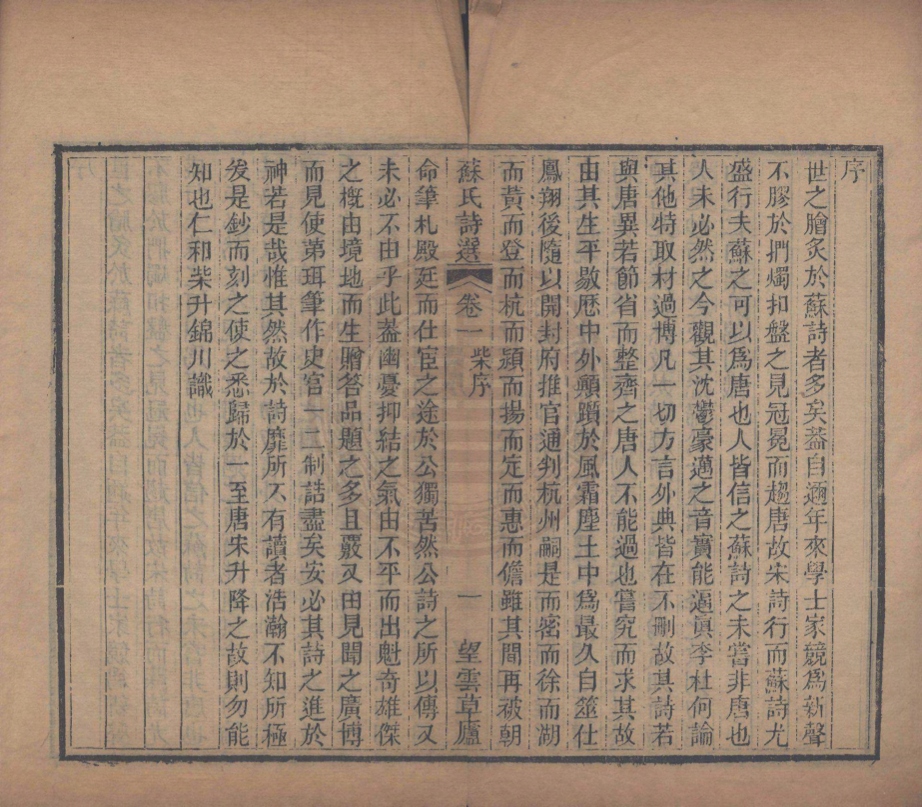 序
世之膾炙於蘇詩者多矣葢自邇年來學士家競爲新聲
不膠於捫燭扣盤之見冠冕而趨唐故宋詩行而蘇詩尤
盛行夫蘇之可以爲唐也人皆信之蘇詩之未嘗非唐也
人未必然之今觀其沈鬱豪邁之音實能逼眞李杜何論
其他特取材過博凡一切方言外典皆在不刪故其詩若
與唐異若節省而整齊之唐人不能過也嘗究而求其故
由其生平敭歷中外顚躓於風霜塵土中爲最久自筮仕
鳳翔後隨以開封府推官通判杭州嗣是而密而徐而湖
而黃而登而杭而潁而揚而定而惠而儋雖其間再被朝
蘇氏詩選 卷一 柴序 一 望雲草廬
命筆札殿廷而仕宦之途於公獨苦然公詩之所以傳又
未必不由乎此葢幽憂抑結之氣由不平而出魁奇雄傑
之槪由境地而生贈答品題之多且覈又由見聞之廣博
而見使第珥筆作史官一二制誥盡矣安必其詩之進於
神若是哉惟其然故於詩靡所不有讀者浩瀚不知所極
爰是鈔而刻之使之悉歸於一至唐宋升降之故則勿能
知也仁和柴升錦川識